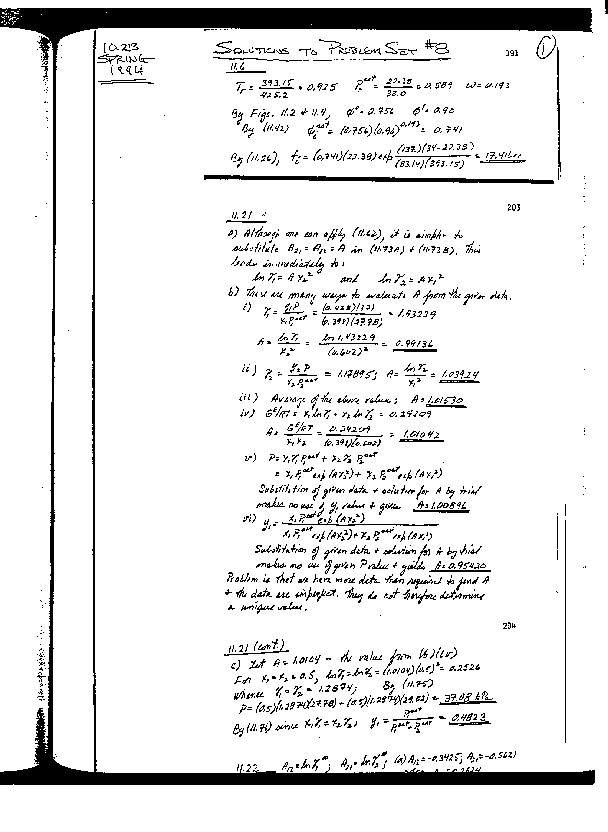 10.213
SPRING
1994
SOLUTIONS TO PROBLEM SET #8
193
1
11.6
Tr = 393.15/425.2 = 0.925 ω = 0.193
By Figs. 11.2 & 11.4, φ° = 0.756 φ' = 0.90
By (11.42) = 0.741
By (11.26), = 17.41
203
11.21
a) Although one can apply (11.62), it is simpler to
substitute A21 = A12 = A in (11.73A) + (11.73B). This
leads immediately to:
ln γ1 = A x2² and ln γ2 = A x1²
b) There are many ways to evaluate A from the given data.
i) γ1 = y1P/x1P1sat = = 1.43229
A = ln γ1/x2² = ln 1.43229/(0.602)² = 0.99136
ii) γ2 = y2P/x2P2sat = 1.17895; A = ln γ2/x1² = 1.03924
iii) Average of the above values: A = 1.01530
iv) GE/RT = x1 ln γ1 + x2 ln γ2 = 0.24209
A = GE/RT/x1x2 = 0.24209/(0.398)(0.602) = 1.01042
v) P = x1γ1P1sat + x2γ2P2sat
= x1P1sat exp(Ax2²) + x2P2sat exp(Ax1²)
Substitution of given data & solution for A by trial
makes no use of y1 value & gives A = 1.00896
vi) y1 = x1P1sat exp(Ax2²)/x1P1sat exp(Ax2²) + x2P2sat exp(Ax1²)
Substitution of given data & solution for A by trial
makes no use of given P value & yields A = 0.95420
Problem is that we have more data than required to find A
& the data are imperfect. They do not therefore determine
a unique value.
204
11.21 (cont.)
c) Let A = 1.0104 - the value from (b)(iv)
For x1 = x2 = 0.5, ln γ1 = ln γ2 = (1.0104)(0.5)² = 0.2526
Whence γ1 = γ2 = 1.2874; By (11.75)
P = (0.5)(1.2874)(27.78) + (0.5)(1.2874)(29.82) = 37.08 kPa
By (11.76) since x1γ1 = x2γ2, y1 = P1sat/P1sat + P2sat = 0.4823
11.22 A12 = ln γ1∞; A21 = ln γ2∞; (a) A12 = -0.3425; A21 = -0.5621